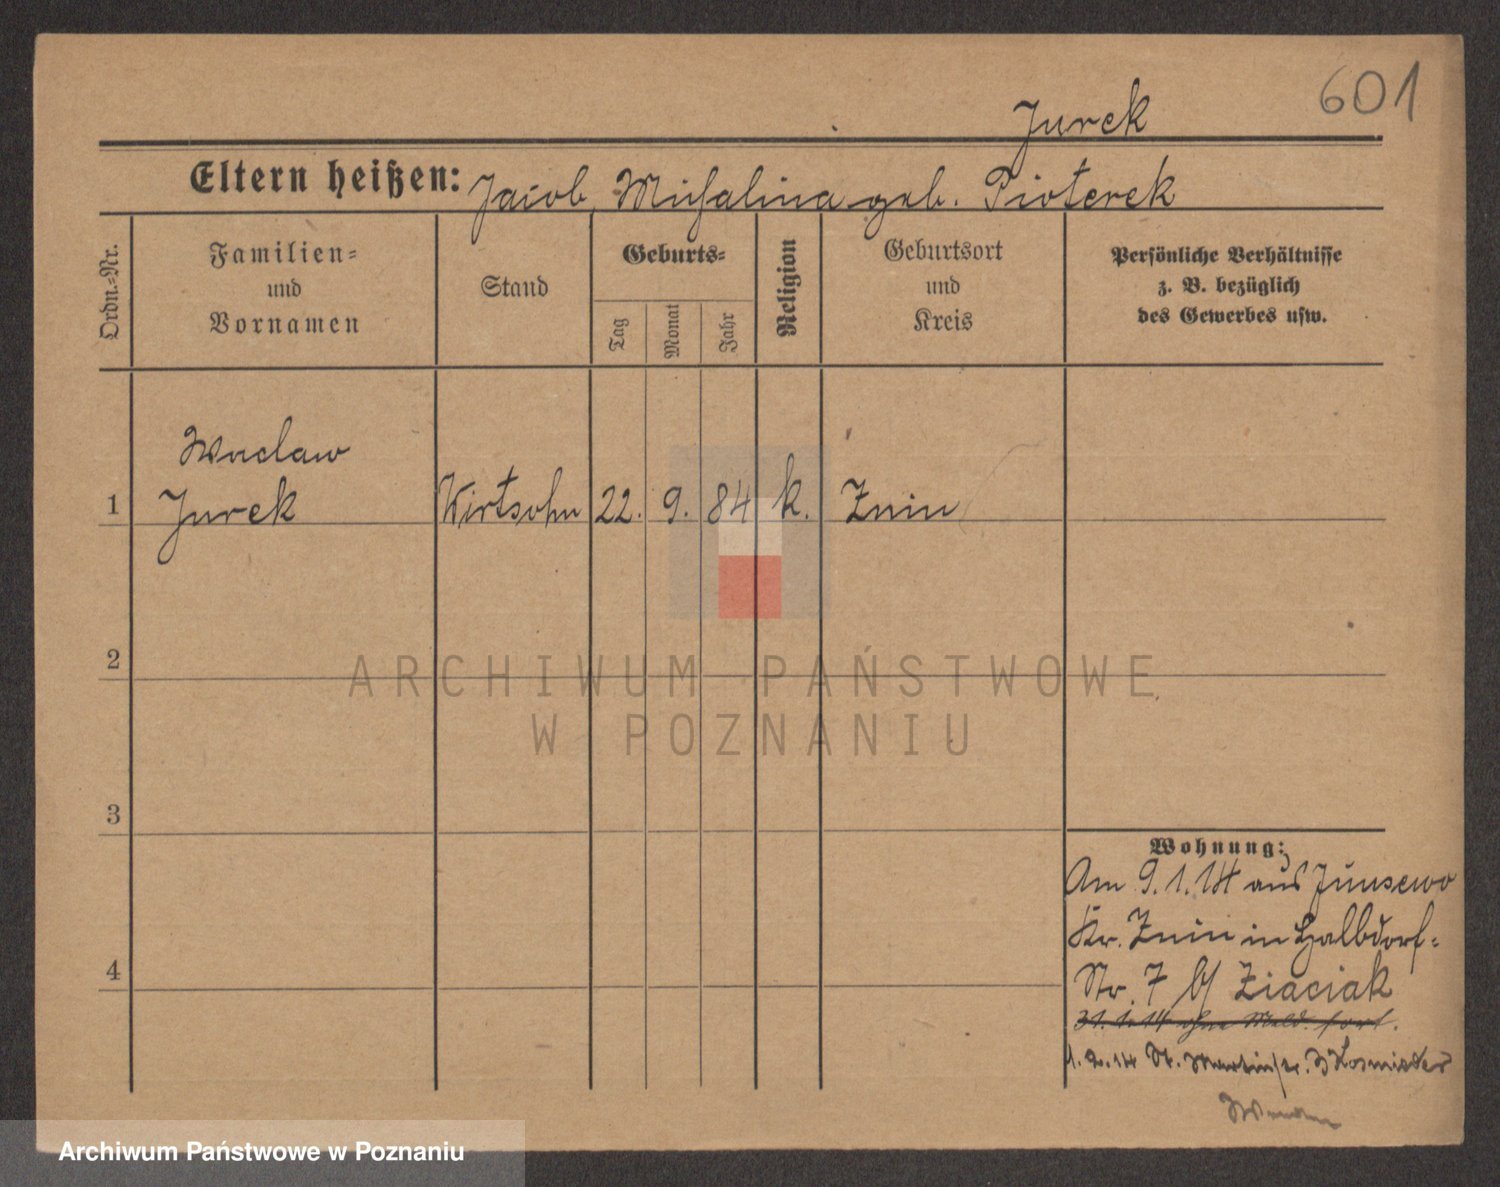 601
Jurek
Eltern heißen: Jacob, Michalina geb. Pioterek
Ordn.-Nr.
Familien-
und
Vornamen
Stand
Geburts-
Tag
Monat
Jahr
Religion
Geburtsort
und
Kreis
Persönliche Verhältnisse
z. B. bezüglich
des Gewerbes usw.
Waclaw
1 Jurek Wirtsohn 22. 9. 84 k. Znin
2
3
4
Wohnung:
Am 9.1.14 aus
Kr. Znin in Halbdorf-
Str. 7 b/ Ziaciak
31.1.14 ohne Meld. fort.
1.2.14 St. Martinstr.
ARCHIWUM PAŃSTWOWE
W POZNANIU
Archiwum Państwowe w Poznaniu